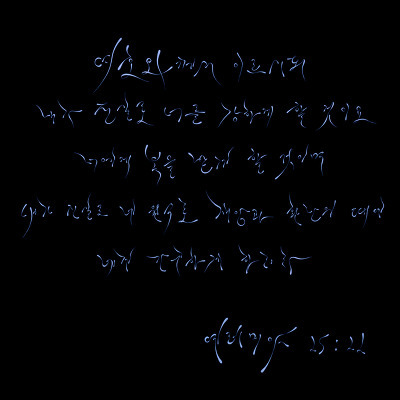 여호와께서 이르시되
내가 진실로 너를 강하게 할 것이요
너에게 복을 받게 할 것이며
내가 진실로 네 원수로 재앙과 환난의 때에
네게 간구하게 하리라
예레미야 15:11